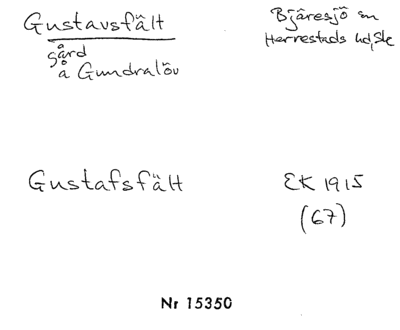 Gustavsfält
Bjäresjö sn
Herrestads hd, Sk
gård
å Gundralöv
Gustafsfält
EK 1915
(67)
Nr 15350